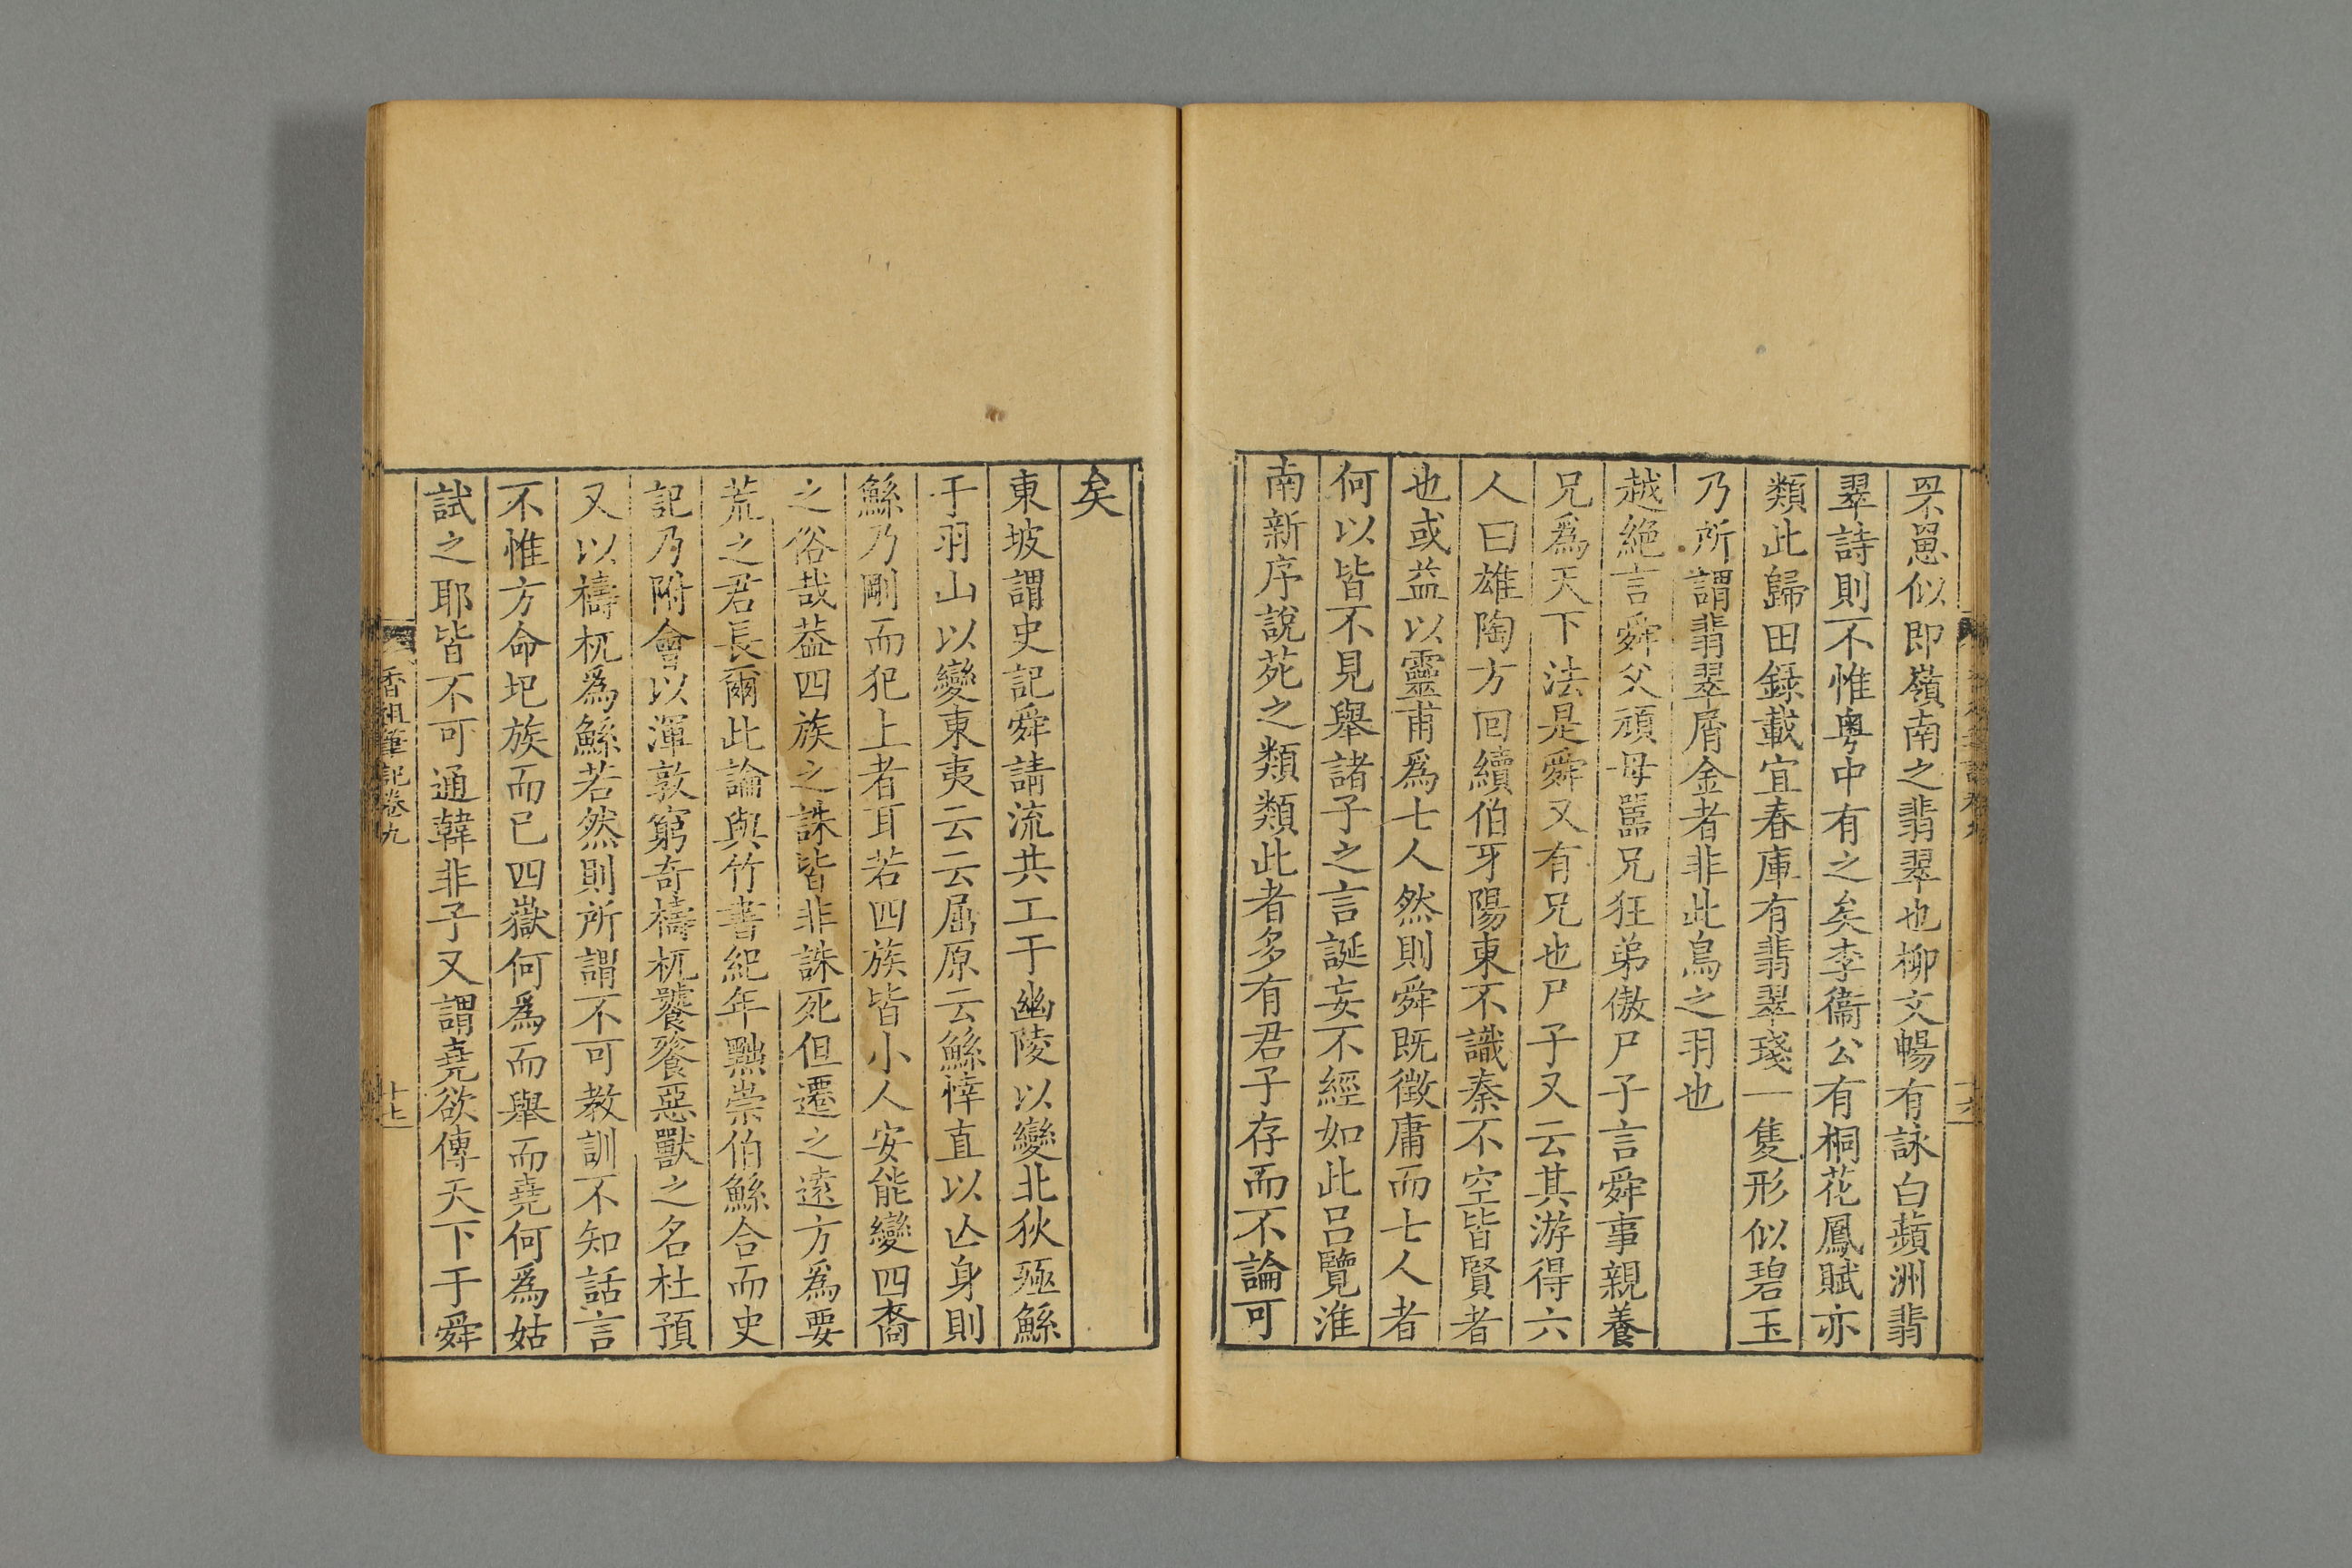 罘罳似即嶺南之翡翠也柳文暢有詠白蘋洲翡
翠詩則不惟粵中有之矣李衞公有桐花鳳賦亦
類此歸田錄載宜春庫有翡翠琖一隻形似碧玉
乃所謂翡翠屑金者非此鳥之羽也
越絕言舜父頑母嚚兄狂弟傲尸子言舜事親養
兄爲天下法是舜又有兄也尸子又云其游得六
人曰雄陶方回續伯牙陽東不識秦不空皆賢者
也或益以靈甫爲七人然則舜既徵庸而七人者
何以皆不見舉諸子之言誕妄不經如此呂覽淮
南新序說苑之類類此者多有君子存而不論可
矣
東坡謂史記舜請流共工于幽陵以變北狄殛鯀
于羽山以變東夷云云屈原云鯀悻直以亾身則
鯀乃剛而犯上者耳若四族皆小人安能變四裔
之俗哉葢四族之誅皆非誅死但遷之遠方爲要
荒之君長爾此論與竹書紀年黜崇伯鯀合而史
記乃附會以渾敦窮奇檮杌饕餮惡獸之名杜預
又以檮杌爲鯀若然則所謂不可教訓不知話言
不惟方命圮族而已四嶽何爲而舉而堯何爲姑
試之耶皆不可通韓非子又謂堯欲傳天下于舜
香祖筆記卷九
十七